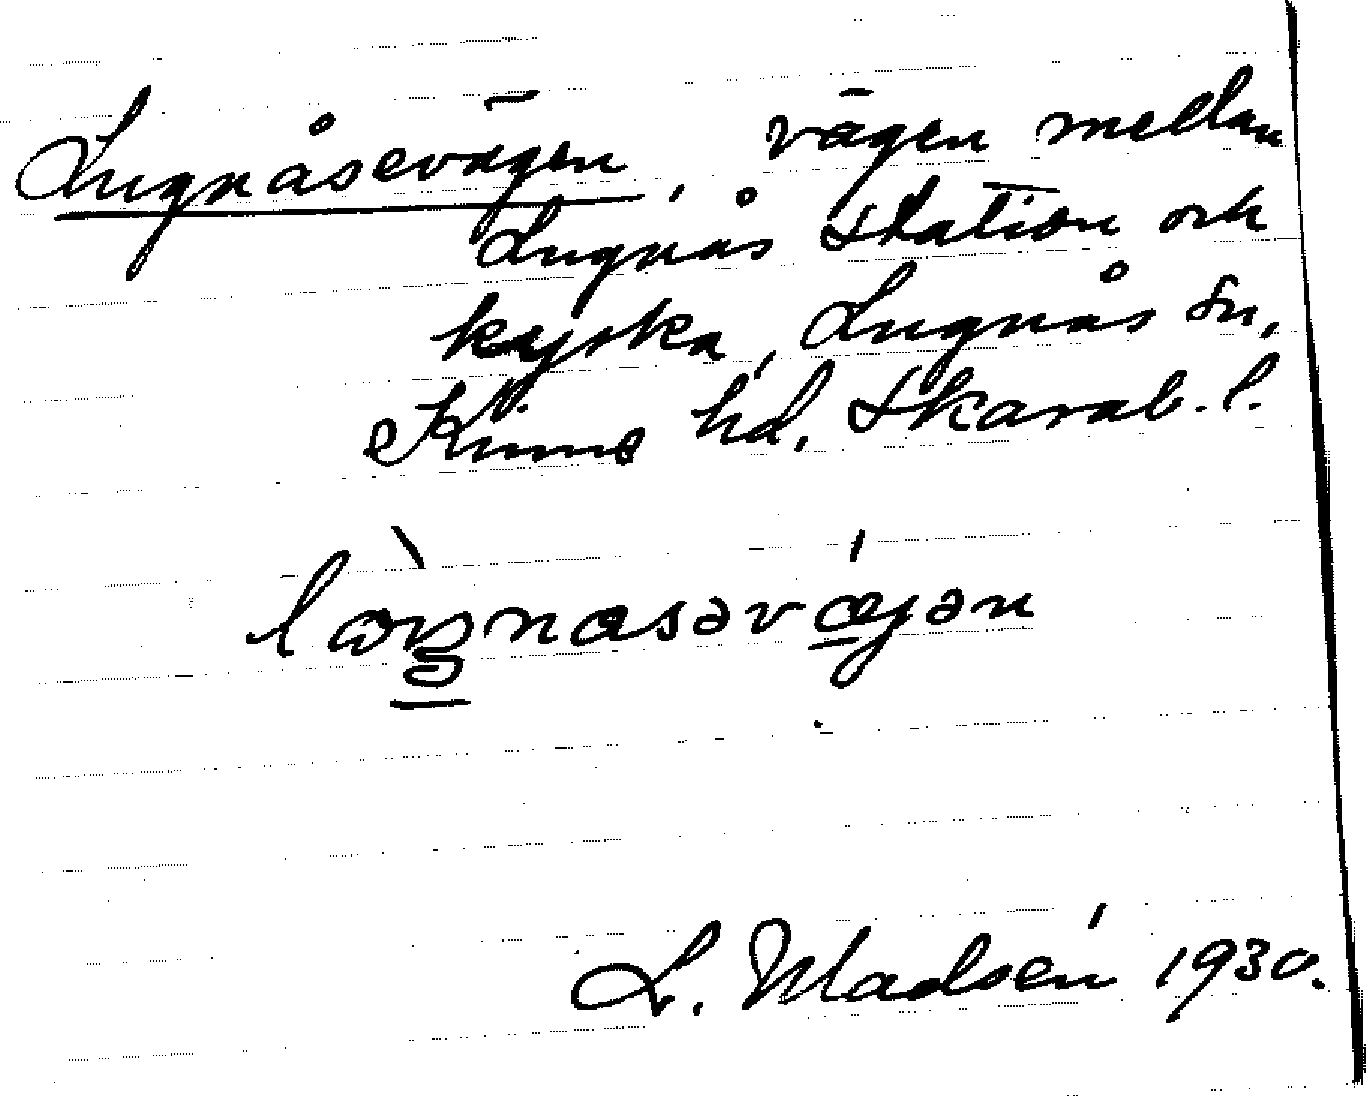 Lugnåsevägen, vägen mellan
Lugnås station och
kyrka, Lugnås sn,
Kinne hd. Skarab. l.
L. Madsén 1930.